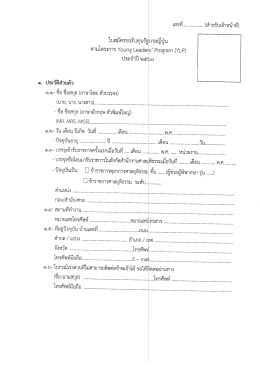 เลขที่.................(สำหรับเจ้าหน้าที่)
ใบสมัครขอรับทุนรัฐบาลญี่ปุ่น
ตามโครงการ Young Leaders' Program (YLP)
ประจำปี ๒๕๖๐
๑. ประวัติส่วนตัว
๑.๑- ชื่อ ชื่อสกุล (ภาษาไทย ตัวบรรจง)
(นาย, นาง, นางสาว)
- ชื่อ ชื่อสกุล (ภาษาอังกฤษ ตัวพิมพ์ใหญ่)
(MR. MRS. MISS)
๑.๒- วัน เดือน ปีเกิด วันที่ ............ เดือน ............ พ.ศ. ............
- ปัจจุบันอายุ ............ ปี ............ เดือน ............ วัน
๑.๓- บรรจุเข้ารับราชการครั้งแรกเมื่อวันที่ .... เดือน ............ พ.ศ. ...... หน่วยงาน
- บรรจุหรือโอนมารับราชการในสังกัดสำนักงานศาลยุติธรรมเมื่อวันที่ ...... เดือน ............ พ.ศ. ......
- ปัจจุบันเป็น ☐ ข้าราชการตุลาการศาลยุติธรรม ชั้น ...... (ผู้ช่วยผู้พิพากษา รุ่น ......)
☐ ข้าราชการศาลยุติธรรม ระดับ
ตำแหน่ง
กอง/สำนัก/ศาล
๑.๔- สถานที่ทำงาน
หมายเลขโทรศัพท์ ............ หมายเลขโทรสาร
๑.๕- ที่อยู่ปัจจุบัน บ้านเลขที่ ............ ถนน
ตำบล / แขวง ............ อำเภอ / เขต
จังหวัด ............ โทรศัพท์
โทรศัพท์มือถือ ............ E - mail
๑.๖- ในกรณีเร่งด่วนที่ไม่สามารถติดต่อข้าพเจ้าได้ ขอให้ติดต่อผ่านทาง
(ชื่อ-นามสกุล) ............ โทรศัพท์
โทรศัพท์มือถือ